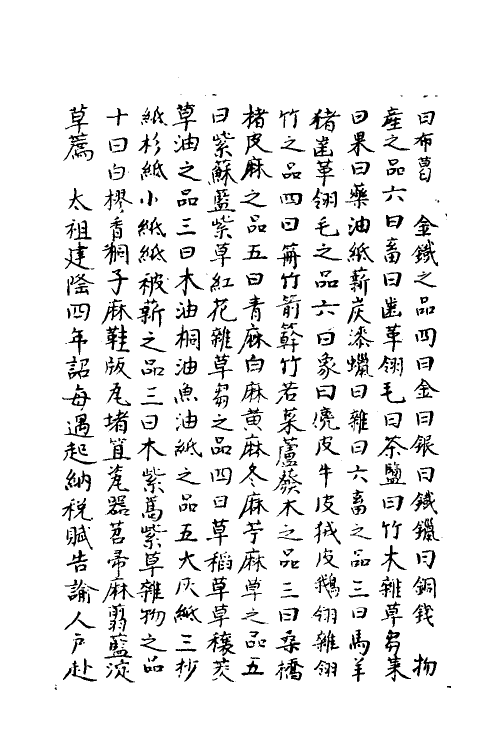 曰布葛　金鐵之品四曰金曰銀曰鐵鑞曰銅錢　物
產之品六曰畜曰齒革翎毛曰茶鹽曰竹木雜草芻茱
曰果曰藥油紙薪炭漆蠟曰雜曰六畜之品三曰馬羊
猪齒革翎毛之品六曰象曰麂皮牛皮狨皮鵝翎雜翎
竹之品四曰筹竹箭簳竹若菜蘆䕠木之品三曰桑橋
楮皮麻之品五曰青麻白麻黄麻冬麻苧麻草之品五
曰紫蘇藍紫草紅花雜草芻之品四曰草稻草草穰茭
草油之品三曰木油桐油魚油紙之品五大灰紙三杪
紙杉紙小紙紙被薪之品三曰木紫蒿紫草雜物之品
十曰白樛香桐子麻鞋版瓦堵笡瓷器苕帚麻剪藍淀
草薦　太祖建隆四年詔每遇起納税賦告諭人戶赴